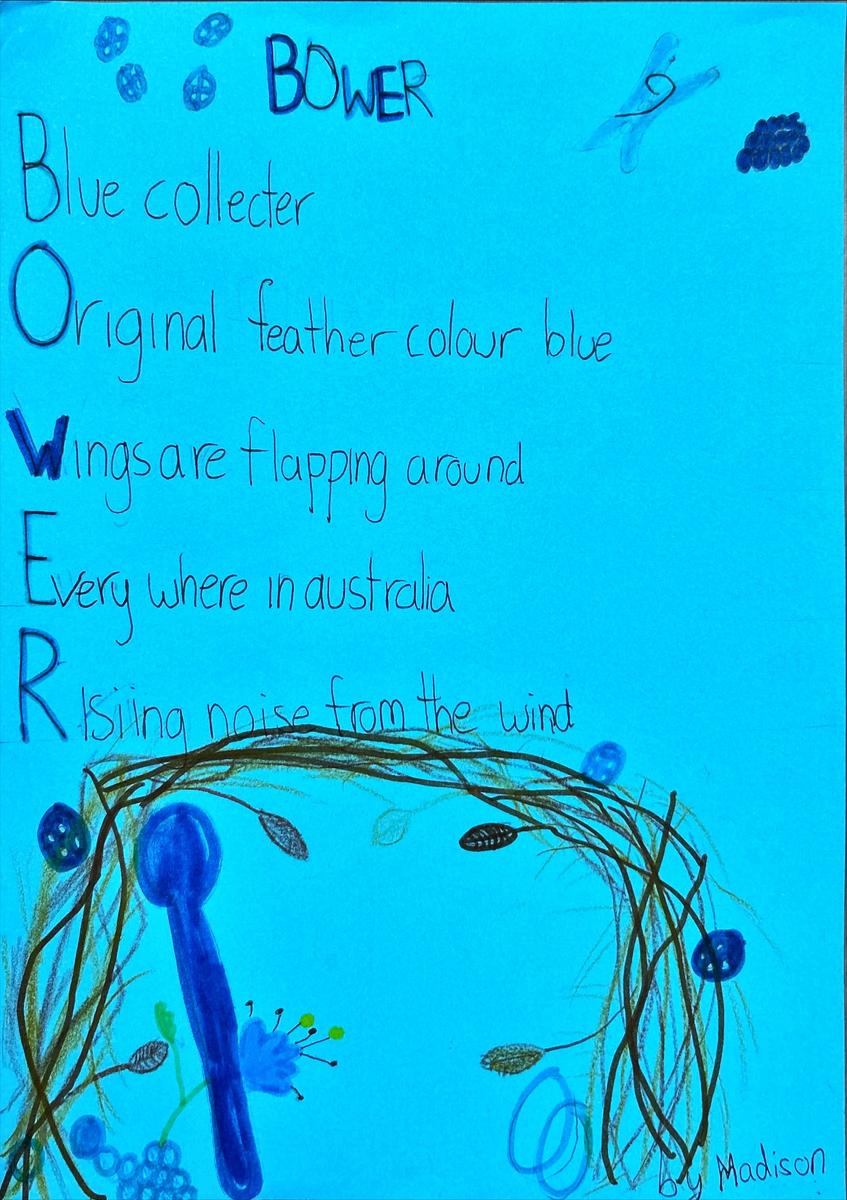 BOWER
Blue collecter
Original feather colour blue
Wings are flapping around
Every where in australia
RIsiing noise from the wind
by Madison